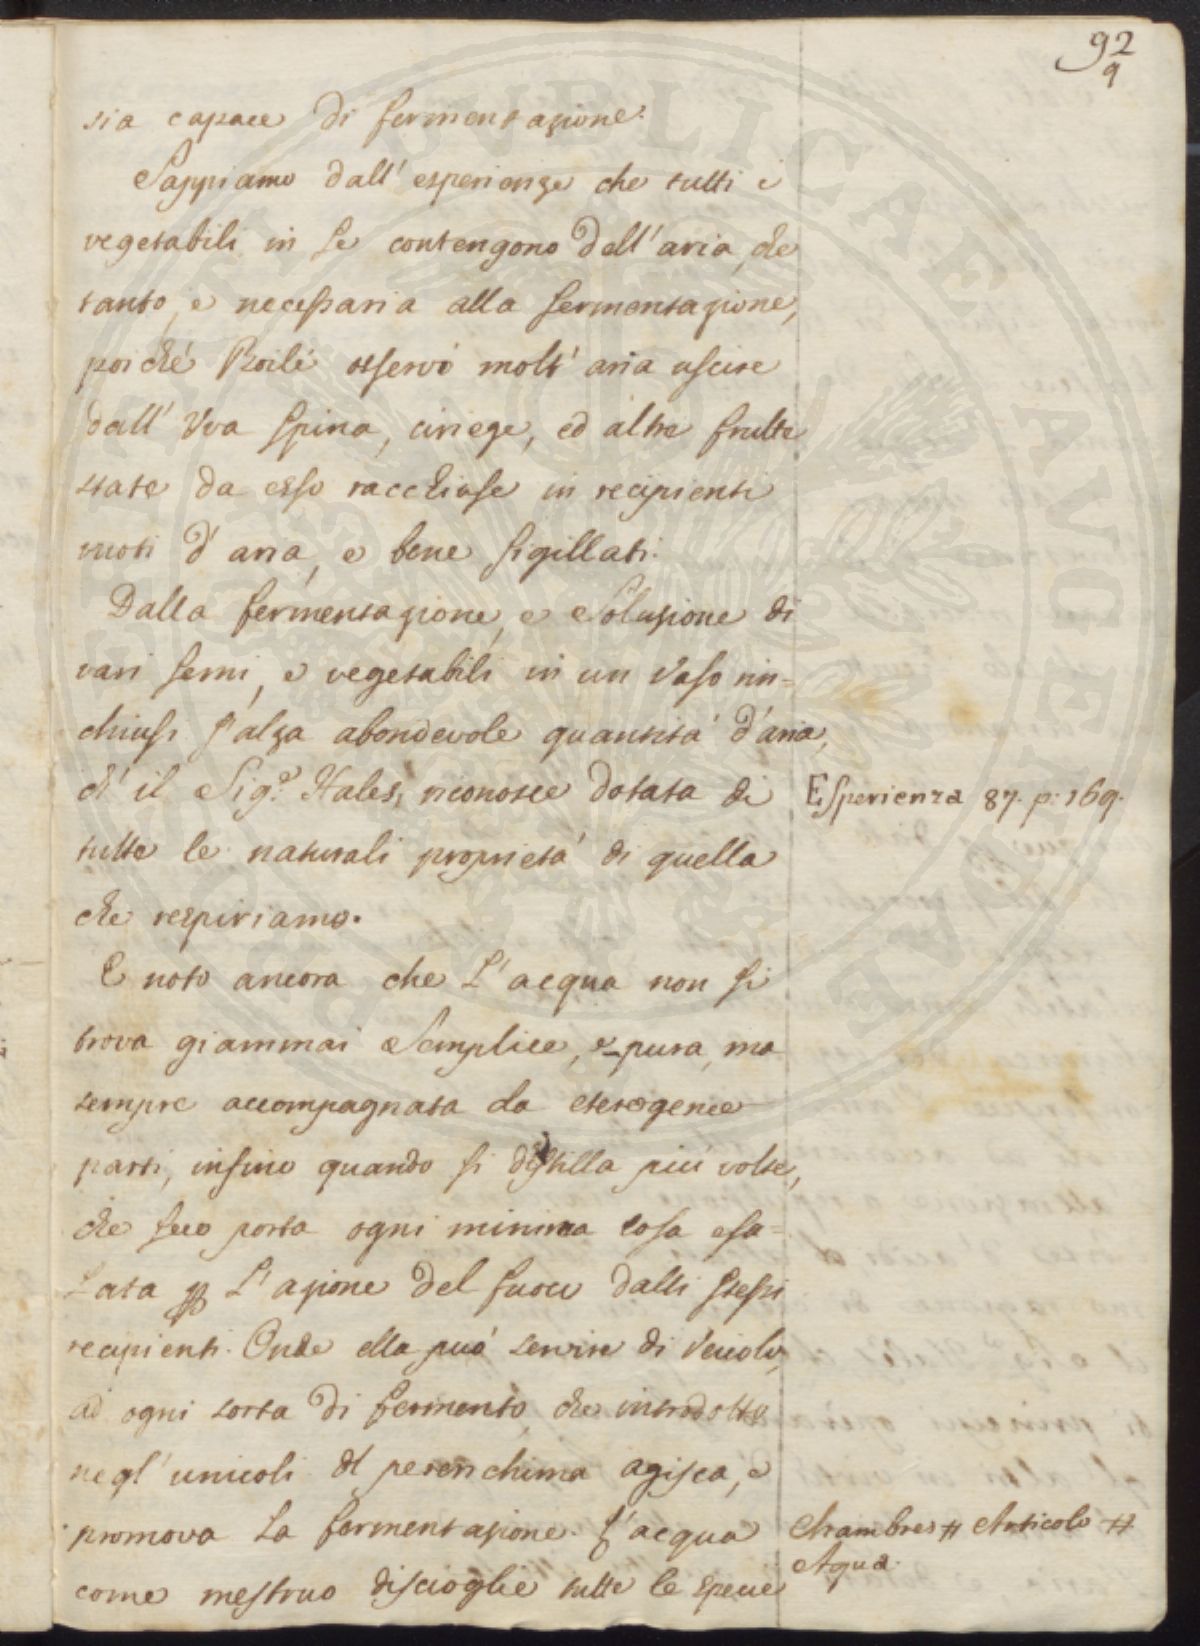 92
9
sia capace di fermentazione.
Sappiamo dall' esperienze che tutti i
vegetabili in se contengono dell' aria, che
tanto, e necessaria alla fermentazione,
poiché Boile osservò molt' aria uscire
dall' Uva spina, ciriege, ed altre frutte
state da esso racchiuse in recipienti
vuoti d' aria, e bene sigillati.
Dalla fermentazione, e Soluzione di
vari semi, e vegetabili in un vaso rin=
chiusi s'alza abondevole quantità d'aria,
ch' il Sig.e Hales, riconosce dotata di
Esperienza 87. p: 169.
tutte le naturali proprietà di quella
che respiriamo.
E noto ancora che L'acqua non si
trova giammai Semplice, e pura, ma
sempre accompagnata da eterogenee
parti, insino quando si distilla più volte,
che seco porta ogni minima cosa esa=
lata L'azione del fuoco dalli stessi
recipienti. Onde ella può servire di Veicolo,
ad ogni sorta di fermento, che introdotto
negl' unicoli dl perenchima agisca, e
promova La fermentazione. L'acqua
Chambres # Articolo #
Aqua.
come mestruo discioglie tutte le specie
PUBLICAE AUGENDAE